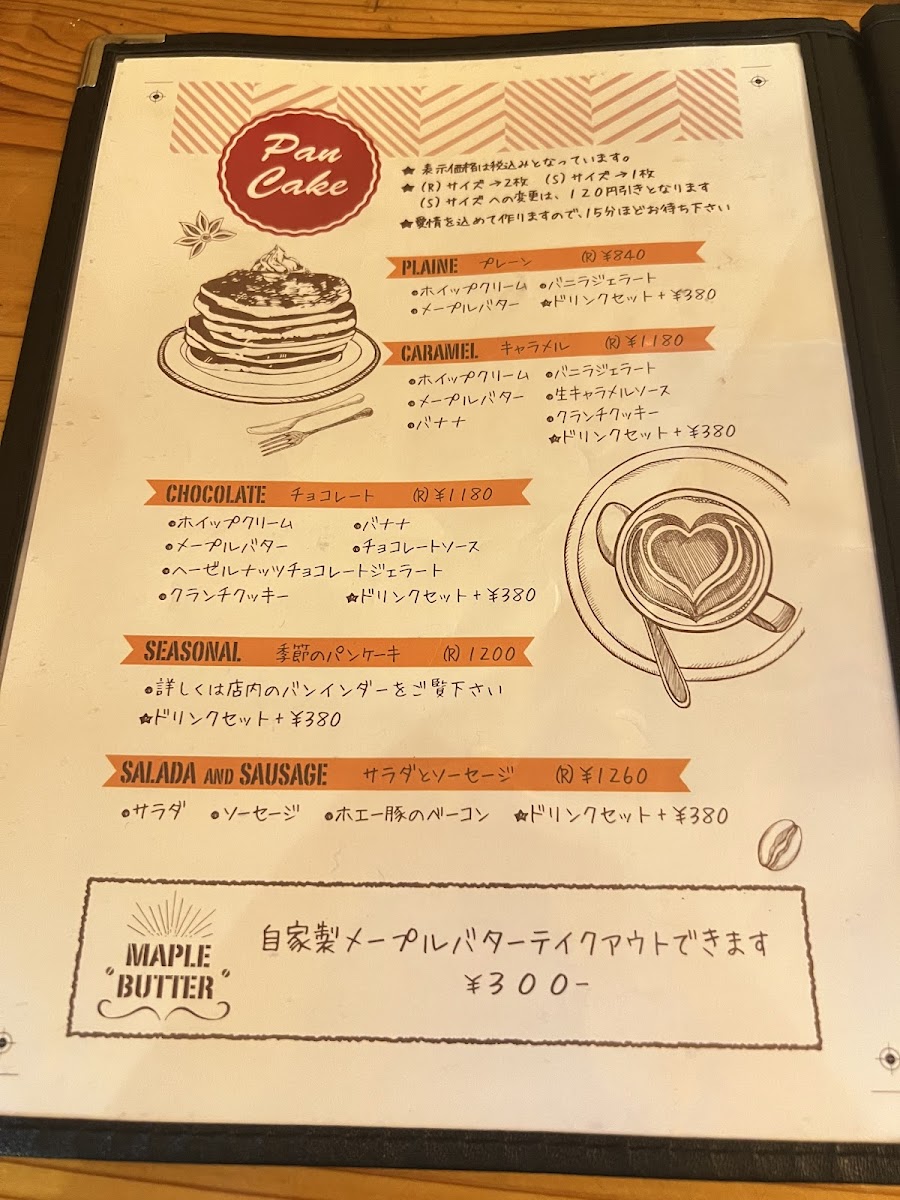 Pan
Cake
★ 表示価格は税込みとなっています。
★ (R) サイズ→2枚 (S) サイズ→1枚
(S) サイズへの変更は、120円引きとなります
★ 愛情を込めて作りますので、15分ほどお待ち下さい
PLAINE プレーン (R) ¥840
・ホイップクリーム ・バニラジェラート
・メープルバター ★ドリンクセット+¥380
CARAMEL キャラメル (R) ¥1180
・ホイップクリーム ・バニラジェラート
・メープルバター ・生キャラメルソース
・バナナ ・クランチクッキー
★ドリンクセット+¥380
CHOCOLATE チョコレート (R) ¥1180
・ホイップクリーム ・バナナ
・メープルバター ・チョコレートソース
・ヘーゼルナッツチョコレートジェラート
・クランチクッキー ★ドリンクセット+¥380
SEASONAL 季節のパンケーキ (R) 1200
・詳しくは店内のバンインダーをご覧下さい
★ドリンクセット+¥380
SALADA AND SAUSAGE サラダとソーセージ (R) ¥1260
・サラダ ・ソーセージ ・ホエー豚のベーコン ★ドリンクセット+¥380
MAPLE
"BUTTER"
自家製メープルバターテイクアウトできます
¥300-